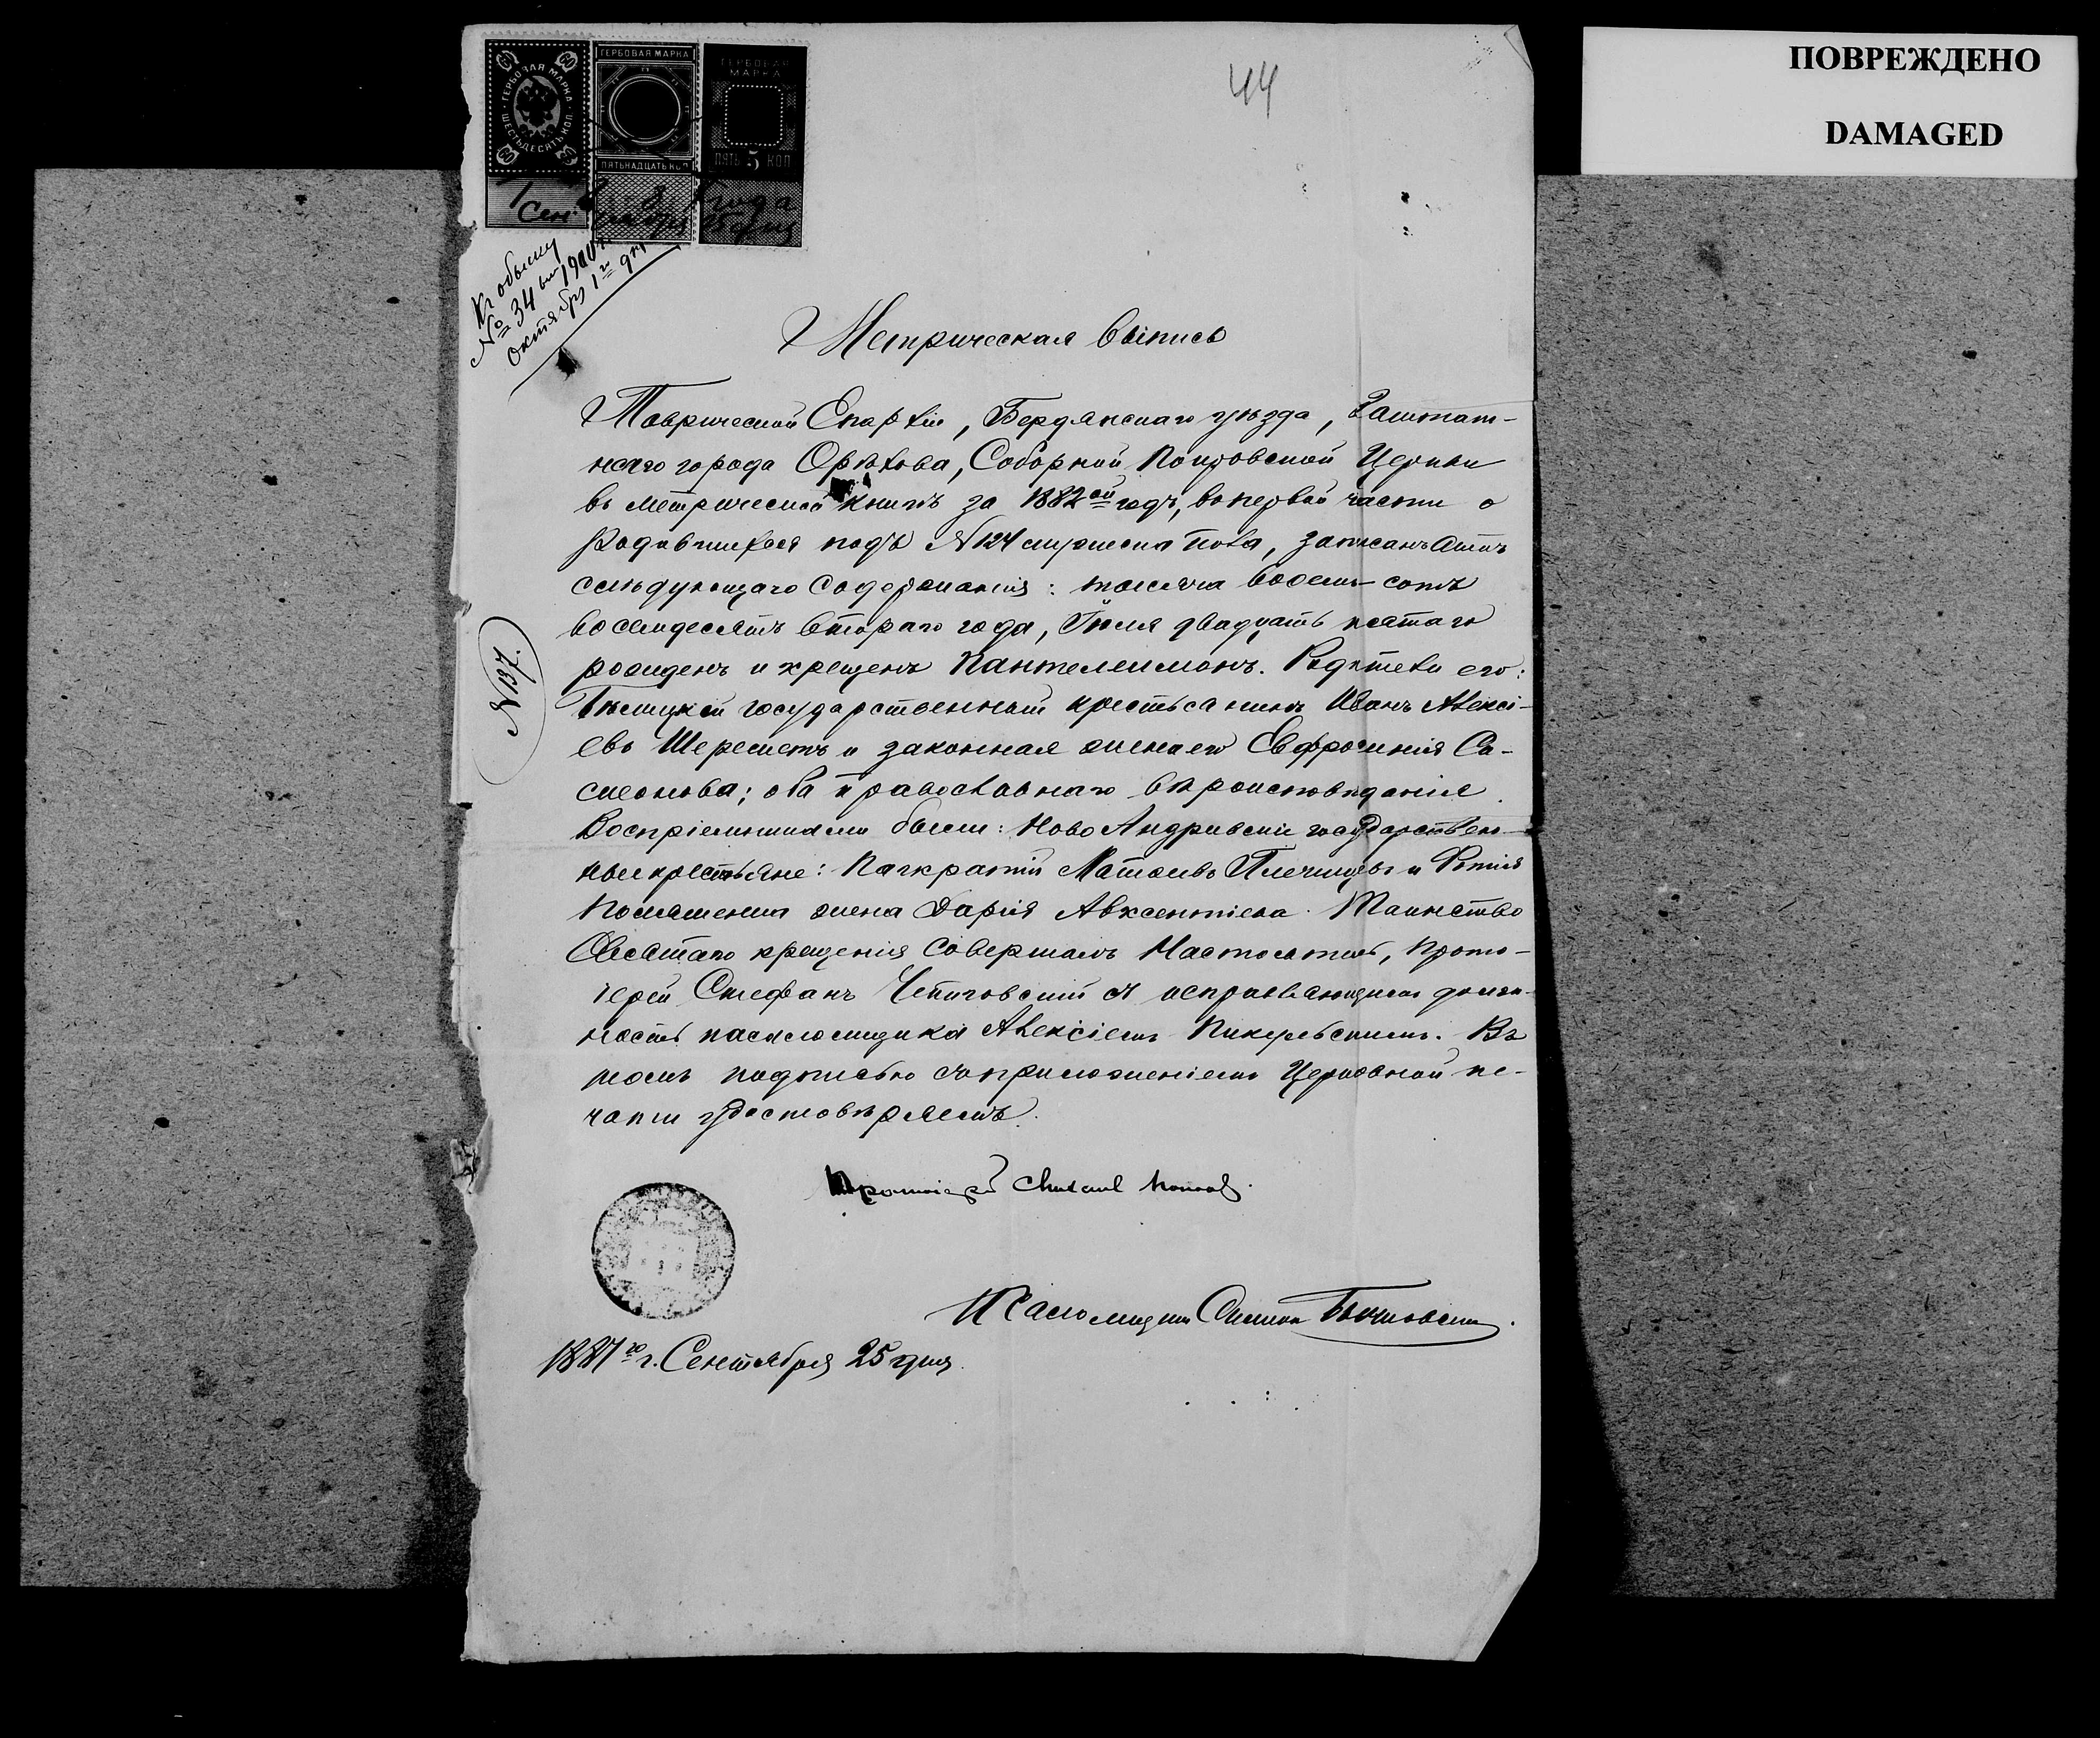 44
ПОВРЕЖДЕНО
DAMAGED
ГЕРБОВАЯ МАРКА
ШЕСТЬДЕСЯТЪ КОП.
60
ГЕРБОВАЯ МАРКА
ПЯТЬНАДЦАТЬ КОП
ГЕРБОВАЯ
МАРКА
ПЯТЬ 5 КОП
1
года
Къ обыску
№ 34 1900 г.
Октября 1го дня
Метрическая выпись
Таврической Епархіи, Бердянскаго уѣзда, Заштат-
наго города Орѣхова, Соборной Покровской Церкви
въ метрической книгѣ за 1882ой годъ, въ первой части о
родившихся подъ N 124 мужеска пола, записанъ актъ
слѣдующаго содержанія: тысяча восемь-сотъ
восемдесятъ втораго года, Іюля двадцать пятаго
рожденъ и крещенъ Пантелеимонъ. Родители его:
государственный крестьянинъ Иванъ Алексі-
евъ Шереметъ и законная жена его Евфросинія Са-
мсонова; оба православнаго вѣроисповѣданія.
Воспріемниками были: Ново Андріевскіе государствен-
ные крестьяне: Панкратій Матѳіевъ и Фотія
жена Дарія Авксентіева. Таинство
Святаго крещенія совершалъ Настоятель, Прото-
іерей Стефанъ съ исправляющимъ долж-
ность псаломщика Алексіемъ. Въ
чемъ подписью съ приложеніемъ Церковной пе-
чати удостовѣряемъ.
N 137.
Протоіерей Михаилъ Поповъ.
Псаломщикъ Симеонъ
1887го г. Сентября 25 дня.